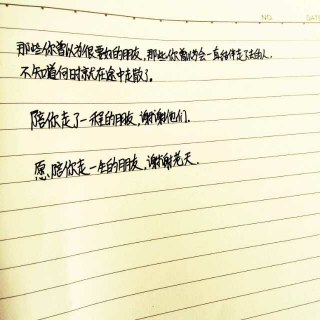 NO.
DATE
那些你曾以为很要好的朋友,那些你曾以为会一直结伴走下去的人.
不知道何时就在途中走散了。
陪你走了一程的朋友,谢谢他们.
愿陪你走一生的朋友,谢谢老天.